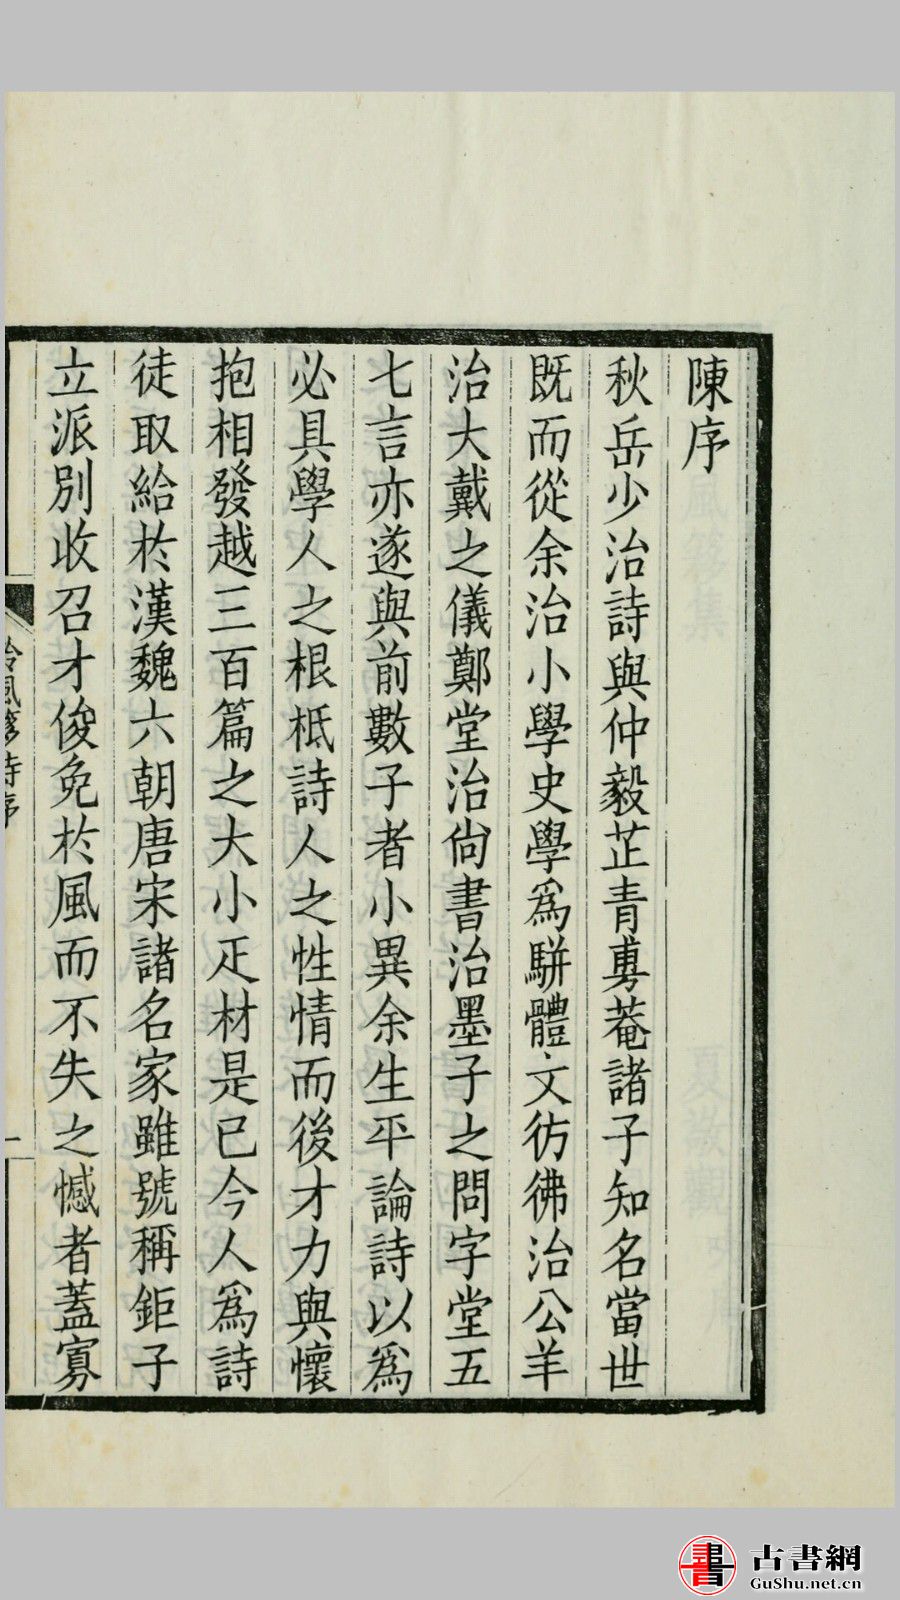 陳序
秋岳少治詩與仲毅芷青甹菴諸子知名當世
既而從余治小學史學爲駢體文彷彿治公羊
治大戴之儀鄭堂治尙書治墨子之問字堂五
七言亦遂與前數子者小異余生平論詩以爲
必具學人之根柢詩人之性情而後才力與懷
抱相發越三百篇之大小疋材是已今人爲詩
徒取給於漢魏六朝唐宋諸名家雖號稱鉅子
立派別收召才俊免於風而不失之憾者蓋寡
風簃詩序
一
古書網
GuShu.net.cn